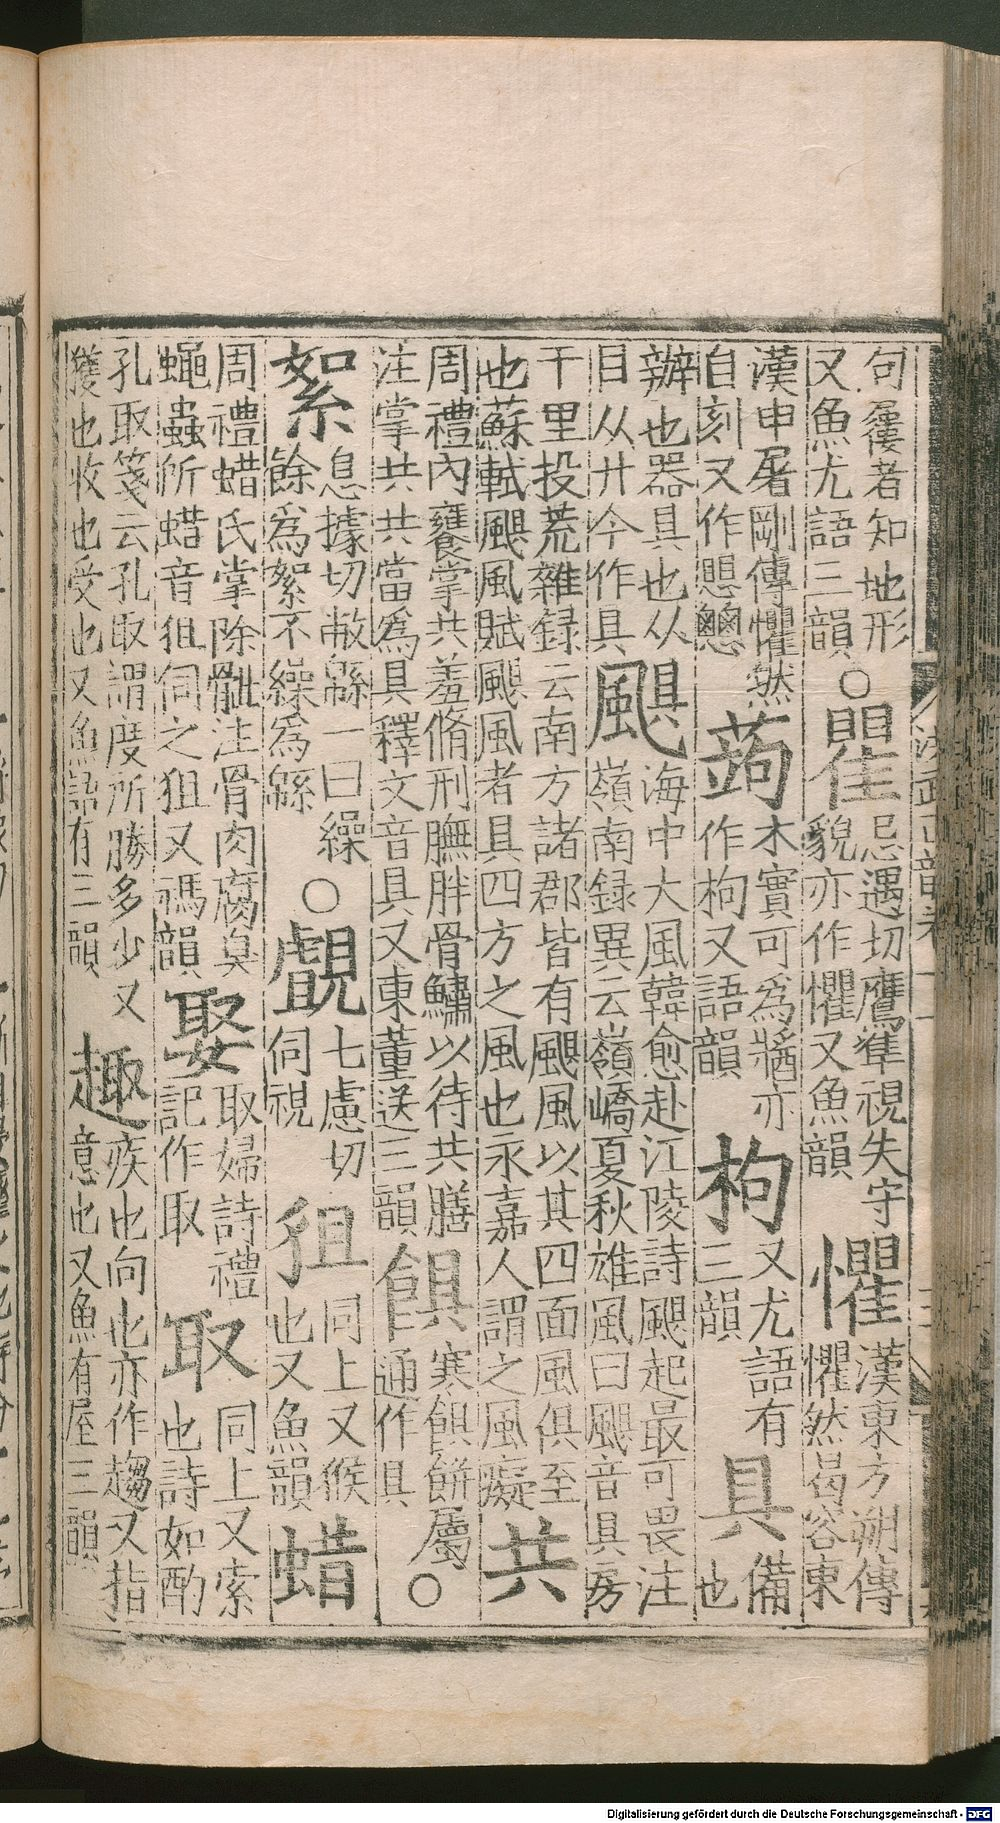 句屨者知地形
又魚尤語三韻○瞿忌遇切鷹隼視失守
貌亦作懼又魚韻懼漢東方朔傳
懼然易容東
漢申屠剛傳懼然
自刻又作思愳蒟木實可為醬亦
作枸又語韻枸又尤語有
三韻具備
也
辦也器具也从
目从廾今作具颶海中大風韓愈赴江陵詩颶起最可畏注
嶺南録異云嶺嶠夏秋雄風曰颶音具房
千里投荒雜録云南方諸郡皆有颶風以其四面風俱至
也蘇軾颶風賦颶風者具四方之風也永嘉人謂之風癡共
周禮內饔掌共羞脩刑膴胖骨鱐以待共膳
注掌共共當為具釋文音具又東董送三韻䬽寒䬽餅屬○
通作具
絮息據切敝緜一曰繰○
餘為絮不繰為緜覷七慮切
伺視狙同上又候
也又魚韻蜡
周禮蜡氏掌除骴注骨肉腐臭
蠅蟲所蜡音狙伺之狙又禡韻娶取婦詩禮
記作取取同上又索
也詩如酌
孔取箋云孔取謂度所勝多少又
獲也收也受也又魚語有三韻趣疾也向也亦作趨又指
意也又魚有屋三韻
Digitalisierung gefördert durch die Deutsche Forschungsgemeinschaft - DFG